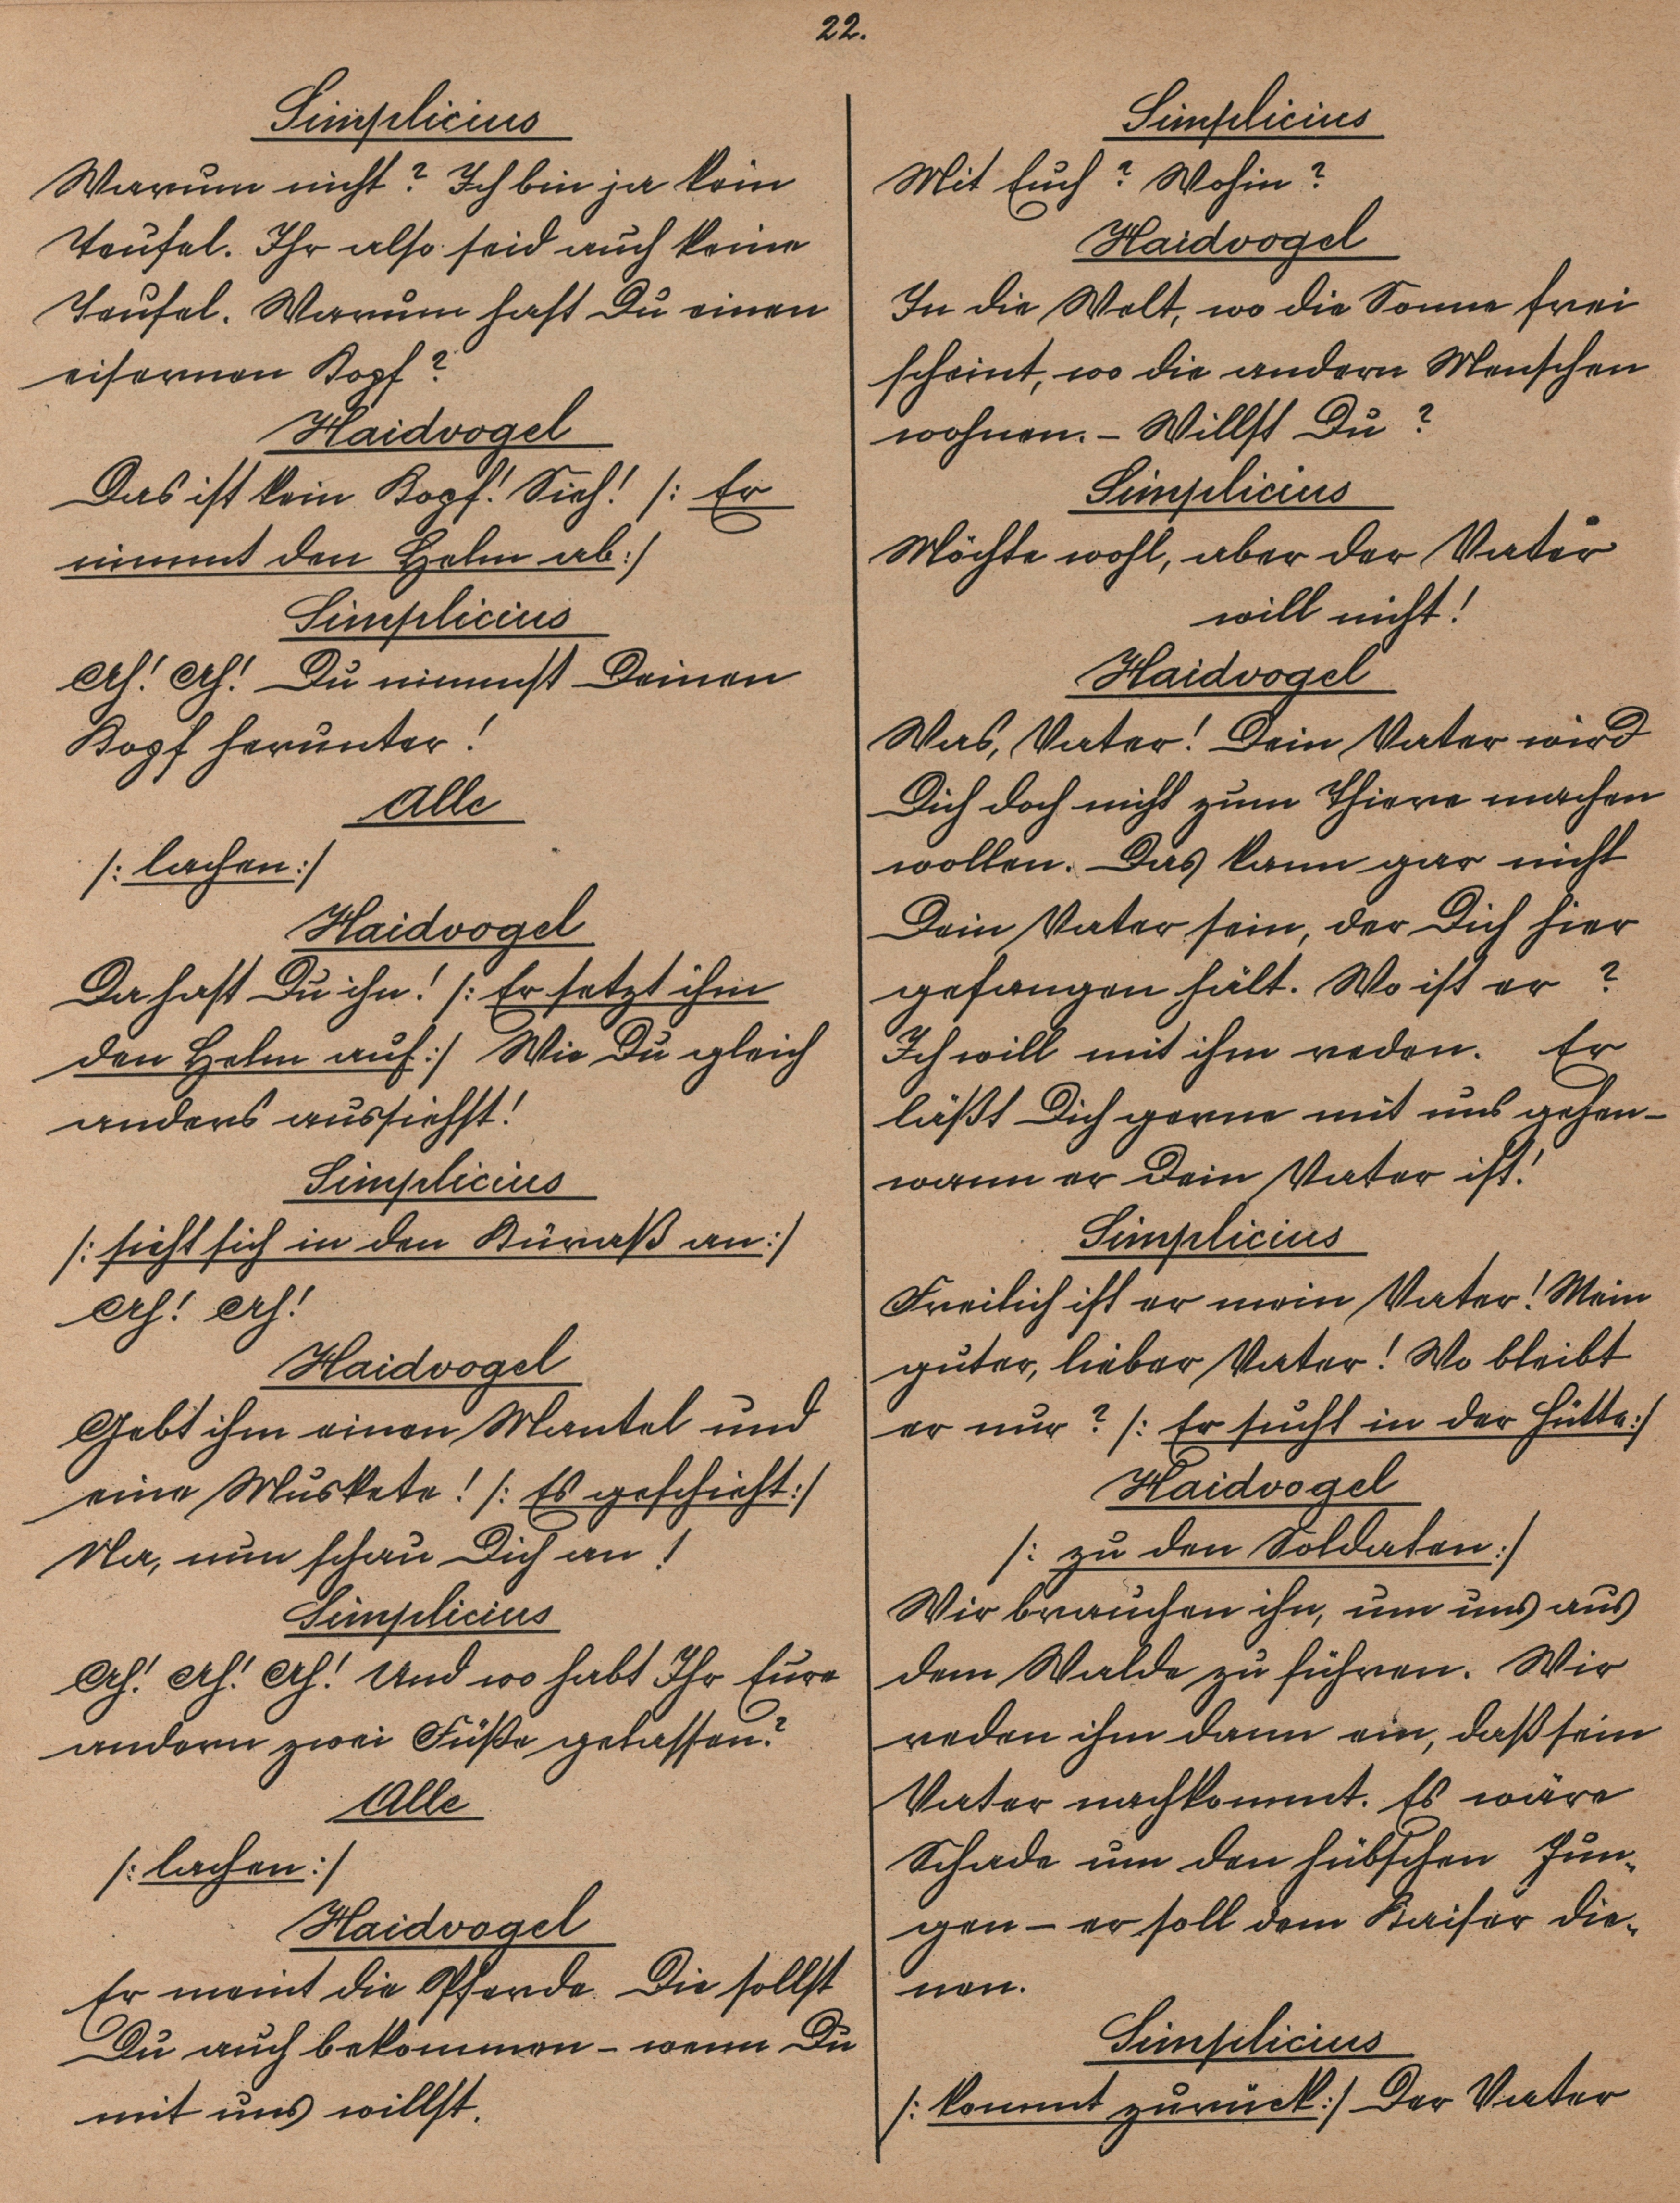 22.
Simplicius
Warum nicht? Ich bin ja kein
Teufel. Ihr also seid auch keine
Teufel. Warum hast Du einen
eisernen Kopf?
Haidvogel
Das ist kein Kopf! Sieh! /: Er
nimmt den Helm ab :/
Simplicius
Ah! Ah! Du nimmst Deinen
Kopf herunter!
Alle
/: lachen :/
Haidvogel
Da hast Du ihn! /: Er setzt ihm
den Helm auf :/ Wie Du gleich
anders aussiehst!
Simplicius
/: sieht sich in den Küraß an :/
Ah! Ah!
Haidvogel
Gebt ihm einen Mantel und
eine Muskete! /: Es geschieht :/
Na, nun schau Dich an!
Simplicius
Ah! Ah! Ah! Und wo habt Ihr Eure
andern zwei Füße gelassen?
Alle
/: lachen :/
Haidvogel
Er meint die Pferde. Die sollst
Du auch bekommen – wenn Du
mit uns willst.
Simplicius
Mit Euch? Wohin?
Haidvogel
In die Welt, wo die Sonne frei
scheint, wo die andern Menschen
wohnen. – Willst Du?
Simplicius
Möchte wohl, aber der Vater
will nicht!
Haidvogel
Was, Vater! Dein Vater wird
Dich doch nicht zum Thiere machen
wollen. Das kann gar nicht
Dein Vater sein, der Dich hier
gefangen hält. Wo ist er?
Ich will mit ihm reden. Er
läßt Dich gerne mit uns gehen –
wann er Dein Vater ist!
Simplicius
Freilich ist er mein Vater! Mein
guter, lieber Vater! Wo bleibt
er nur? /: Er sucht in der Hütte :/
Haidvogel
/: zu den Soldaten :/
Wir brauchen ihn, um uns aus
dem Walde zu führen. Wir
reden ihm dann ein, daß sein
Vater nachkommt. Es wäre
Schade um den hübschen Jun-
gen – er soll dem Kaiser die-
nen.
Simplicius
/: kommt zurück :/ Der Vater